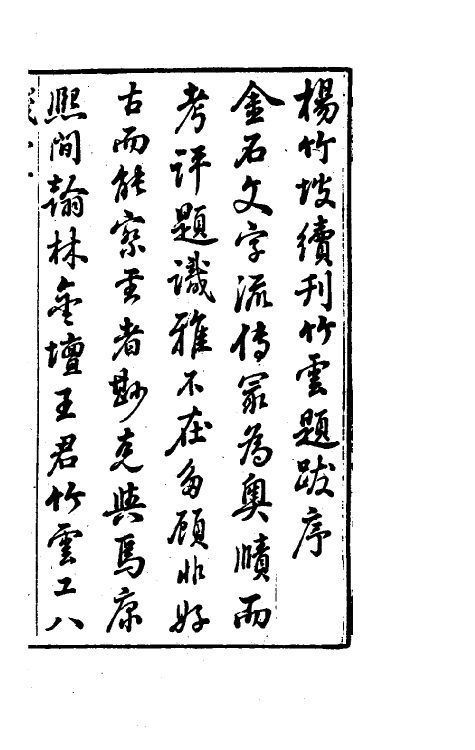 楊竹坡續刊竹雲題跋序
金石文字流傳最為奧賾而
考評題識雅不在多顧非好
古而能察至者尟克與焉康
熙間翰林金壇王君竹雲工八